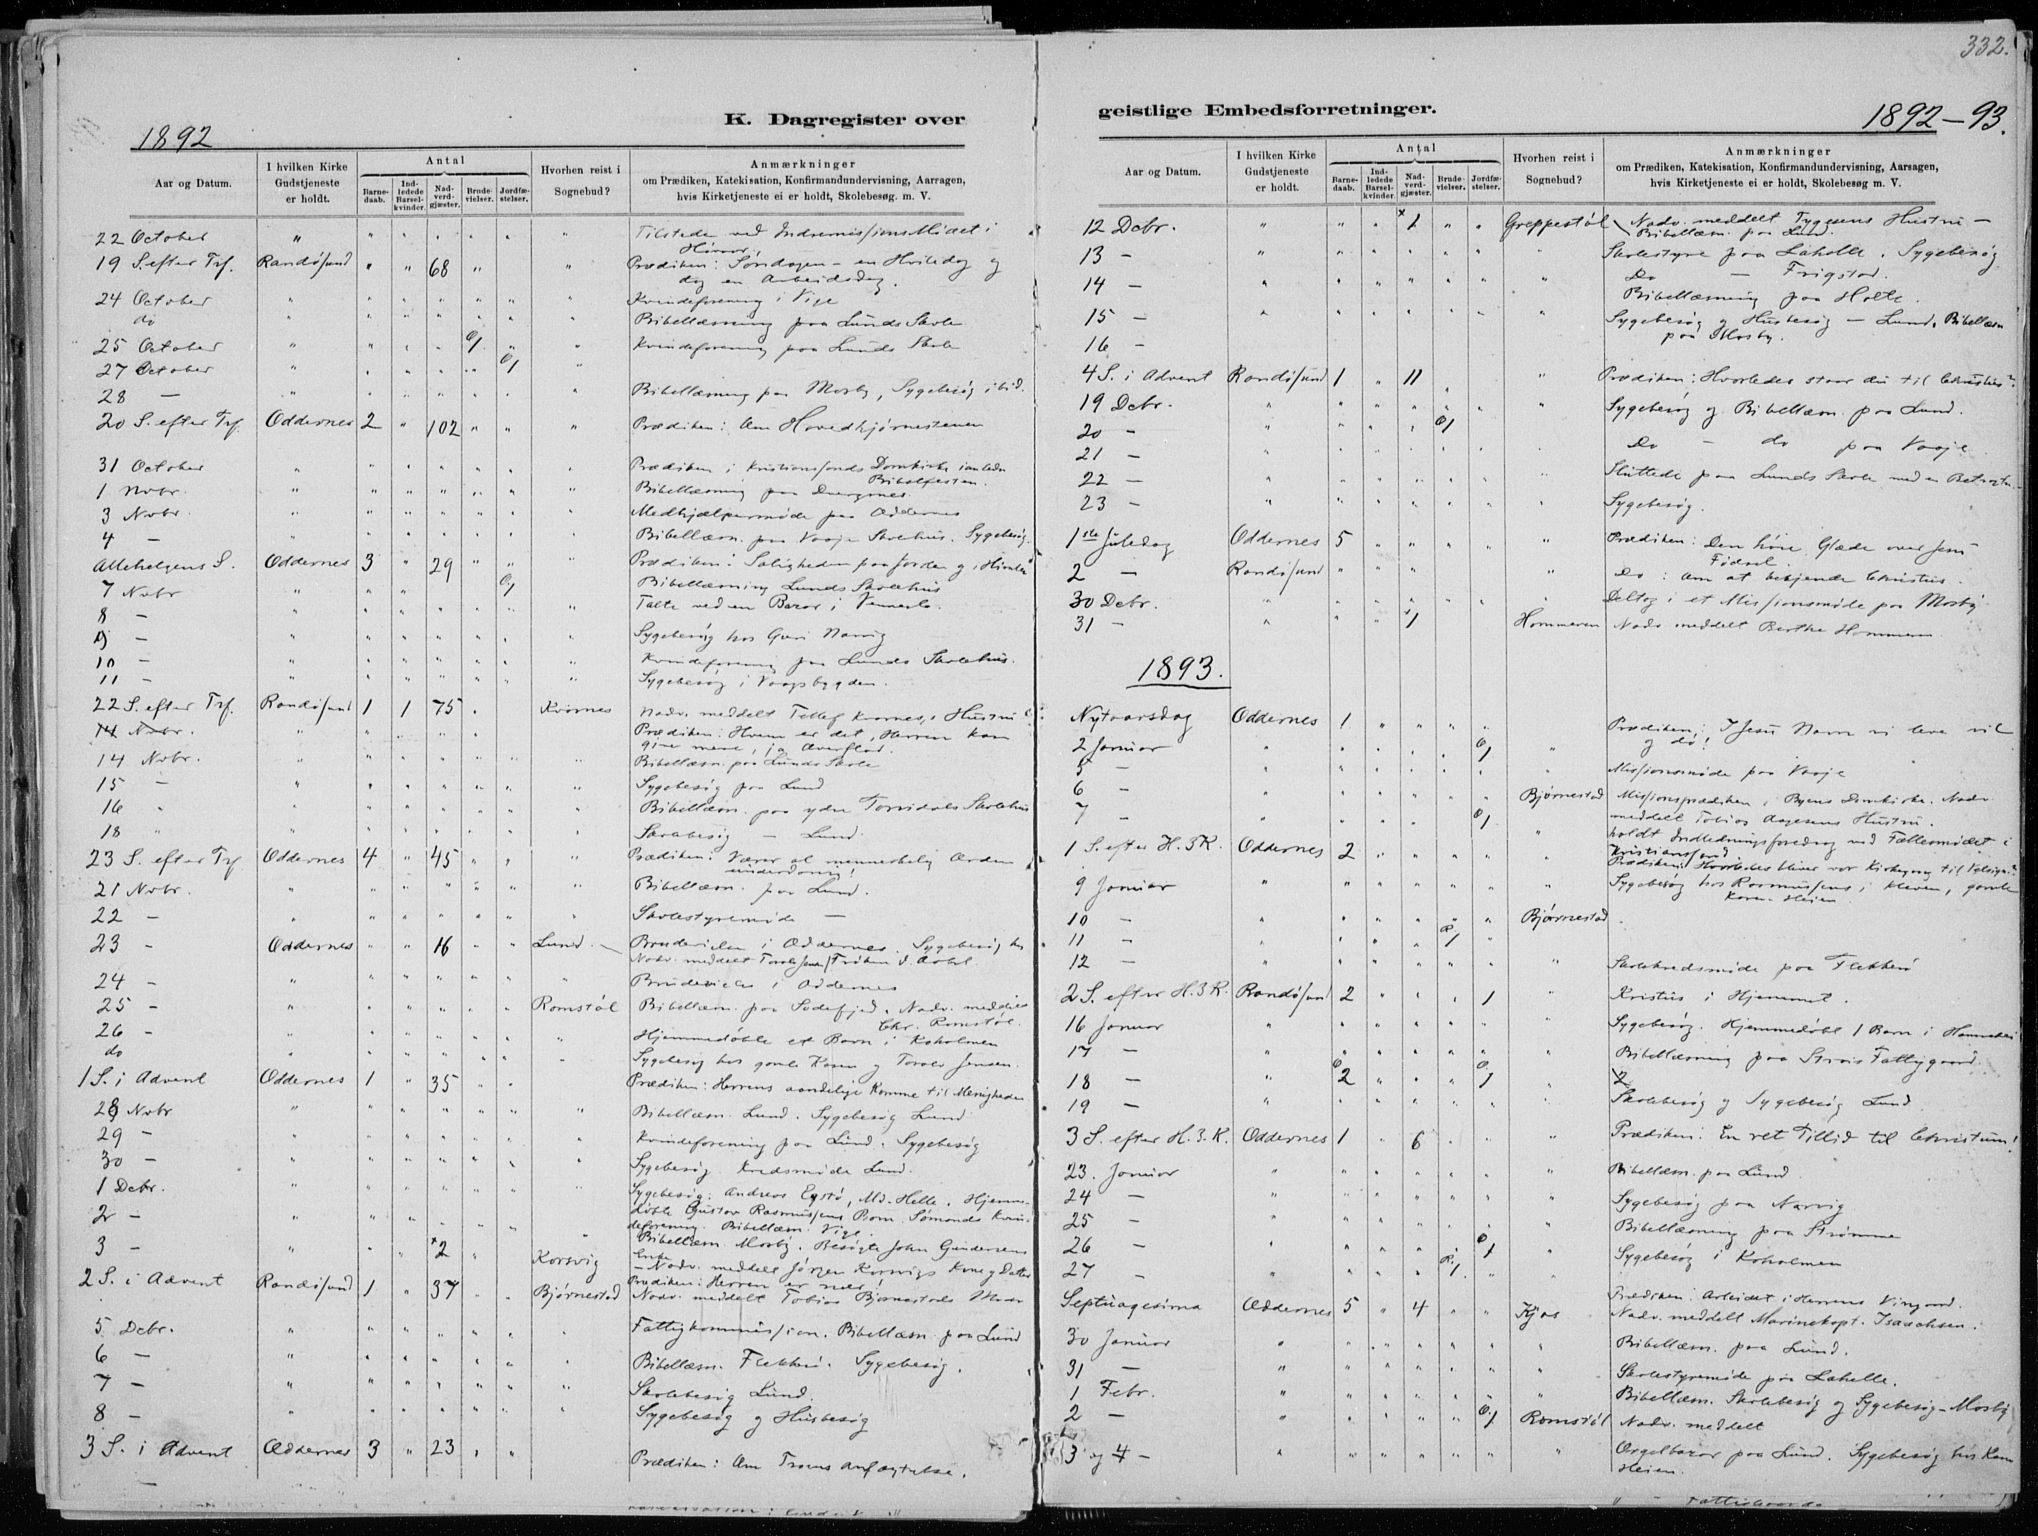 332.
K. Dagregister over
1892
Aar og Datum.
I hvilken Kirke Gudstjeneste er holdt.
Antal
Barnedaab.
Indledede Barselkvinder.
Nadverdgjæster.
Brudevielser.
Jordfæstelser.
Hvorhen reist i Sognebud?
Anmærkninger
om Prædiken, Katekisation, Konfirmandundervisning, Aarragen,
hvis Kirketjeneste ei er holdt, Skolebesøg. m. V.
22 October " Tilstede ved Indremissions Mødet i
19 S. efter Trf. Randøsund " " 68 " " Prædiken: Søndagen – en Hviledag og
dog en Arbeidsdag.
24 October Kvindeforening i Vige
do Bibellæsning paa Lunds Skole
25 October 1 Kvindeforening paa Lunds Skole
27 October 1
28 — Bibellæsning paa Mosby, Sygebesøg ibid.
20 S. efter Trf. Oddernes 2 " 102 Prædiken: Om Hovedhjørnestenen
31 October Prædiken i Kristianssands Domkirke
Bibelfesten.
1 Novbr. Bibellæsning paa
3 Novbr. Medhjælpermøde paa Oddernes
4 — Bibellæsn. paa Vaaje Skolehus. Sygebesøg.
Allehelgens S. Oddernes 3 " 29 Prædiken: Saligheden paa Jorden og i Himlen
7 Novbr 1 Bibellæsning Lunds Skolehus
8 — Talte ved en Bazar i Vennesla.
9 — Sygebesøg hos Guri Narvig
10 — Kvindeforening paa Lunds Skolehus.
11 — Sygebesøg i Vaagsbygden.
22 S. efter Trf. Randøsund 1 1 75 Kvernes Nadv. meddelt Tellef Kvernes, Hustru
14 Novbr. Prædiken: Hvem er det, Herren kan
give mere, ja Overflod.
14 Novbr. Bibellæsn. paa Lunds Skole
15 — Sygebesøg paa Lund
16 " Bibellæsn. paa ydre Torridals Skolehus
18 " Skolebesøg — Lund.
23 S. efter Trf Oddernes 4 " 45 Prædiken: Værer al menneskelig Orden
underdanig!
21 Novbr. Bibellæsn. paa Lund.
22 — Skolestyremøde —
23 - Oddernes 16 Lund. — Brudevielse i Oddernes. Sygebesøg hos
24 - Brudevielse i Oddernes
25 - Romstøl Bibellæsn. paa Nadv. meddelt
Chr. Romstøl.
26 - Hjemmedøbte et Barn i Koholmen
do Sygebesøg hos gamle Karen og Torolv Jensen.
1 S. i Advent Oddernes 1 " 35 Prædiken: Herrens aandelige Komme til Menigheden
28 Novbr Bibellæsn. Lund. Sygebesøg Lund
29 — Kvindeforening paa Lund. Sygebesøg
30 — Sygebesøg. Kredsmøde Lund.
1 Debr. Sygebesøg: Andreas Egstø, Md. Helle. Hjemme-
2 — døbte Gustav Rasmussens Barn. Sømands Kvin-
deforening. Bibellæsn. Vige.
3 — × 2 Korsvig Bibellæsn. Mosby. Besøgte John Gundersens
Enke
— Nadv. meddelt Jørgen Korsvigs Kone og Datter
2 S. i Advent Randøsund 1 " 37 Bjørnestad Prædiken: Herren er nær!
Nadv. meddelt Tobias Bjørnestads Moder
5 Debr. Fattigkommission. Bibellæsn. paa Lund
6 — Bibellæsn. Flekkerø. Sygebesøg.
7 — Skolebesøg Lund.
8 — Sygebesøg og Husbesøg
3 S. i Advent Oddernes 3 " 23 Prædiken: Om Troens Anfægtelse.
geistlige Embedsforretninger.
1892–93.
Aar og Datum.
I hvilken Kirke Gudstjeneste er holdt.
Antal
Barnedaab.
Indledede Barselkvinder.
Nadverdgjæster.
Brudevielser.
Jordfæstelser.
Hvorhen reist i Sognebud?
Anmærkninger
om Prædiken, Katekisation, Konfirmandundervisning, Aarsagen,
hvis Kirketjeneste ei er holdt, Skolebesøg m. V.
12 Debr. × 1 Greppestøl Nadv. meddelt Tygesens Hustru –
Bibellæsn. paa Lund.
13 — Skolestyre paa Lahelle. Sygebesøg.
14 — Do — Frigstad.
Bibellæsning paa Holte.
15 — Sygebesøg og Husbesøg – Lund. Bibellæsn
16 — paa Mosby.
4 S. i Advent Randøsund 1 " 11 Prædiken: Hvorledes staar du til Christus?
19 Debr. Sygebesøg og Bibellæsn. paa Lund.
20 — 1 Do — do paa Vaaje
21 —
22 — Sluttede paa Lunds Skole med en
23 — Sygebesøg.
1ste Juledag Oddernes 5 Prædiken: Den høie Glæde over Jesu
Fødsel.
2 — Randøsund Do: Om at bekjende Christus.
30 Debr. Deltog i et Missionsmøde paa Mosby
31 — × 1 Hommeren Nadv. meddelt Berthe Hommeren
1893.
Nytaarsdag Oddernes 1 Prædiken: I Jesu Navn vi leve vil
og dø!
2 Januar 1
5 — Missionsmøde paa Vaaje
6 — Bjørnestad Missionsprædiken i Byens Domkirke. Nadv.
7 — 1 meddelt Tobias Aagesens Hustru.
holdt Indledningsforedrag ved Fællesmødet i
Kristianssand.
1 S. efter H. 3 K. Oddernes 2 Prædiken: Hvorledes bliver vor Kirkegang til Velsign.?
9 Januar Sygebesøg hos Rasmussens i Kleven, gamle
Karen Heien.
10 — Bjørnestad
11 — 1
12 — Skolekredsmøde paa Flekkerø
2 S. efter H. 3 K. Randøsund 2 1 Kristus i Hjemmet.
16 Januar Sygebesøg. Hjemmedøbt 1 Barn i
17 — Bibellæsning paa Strais Fattiggaard.
18 — 2 1 2
19 — Skolebesøg og Sygebesøg Lund
3 S. efter H. 3. K. Oddernes 1 " 6 Prædiken: En ret Tillid til Christum!
23. Januar Bibellæsn. paa Lund
24 — Sygebesøg paa Narvig
25 — Bibellæsning paa Strømme
26 — 1 Sygebesøg i Koholmen
27 — 1
Septuagesima Oddernes 5 " 4 Kjos Prædiken: Arbeidet i Herrens Vingaard.
Nadv. meddelt Marinekapt. Isaachsen.
30 Januar Bibellæsn. paa Lund.
31 — Skolestyremøde paa Lahelle.
1 Febr. Bibellæsn. Skolebesøg og Sygebesøg – Mosby
2 — 1 Romstøl Nadv. meddelt
3 og 4 — Orgelbazar paa Lund. Sygebesøg hos Karen
Heien.